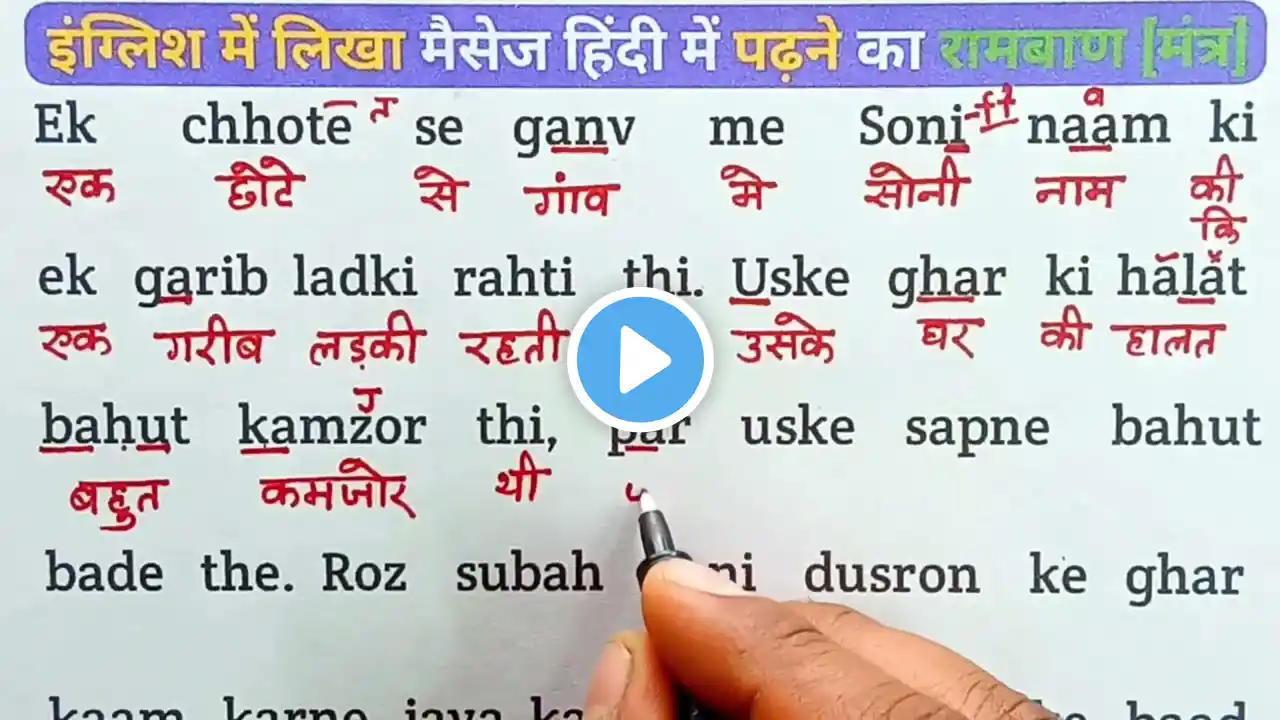 इंग्लिश में लिखा मैसेज हिंदी में पढ़ने का रामबाण [मंत्र]
Ek chhote se ganv me Soni naam ki
एक छोटे से गांव मे सोनी नाम की
कि
ek garib ladki rahti thi. Uske ghar ki halat
एक गरीब लड़की रहती उसके घर की हालत
bahut kamzor thi, par uske sapne bahut
बहुत कमजोर थी
bade the. Roz subah dusron ke ghar
kaam karne jaya baad